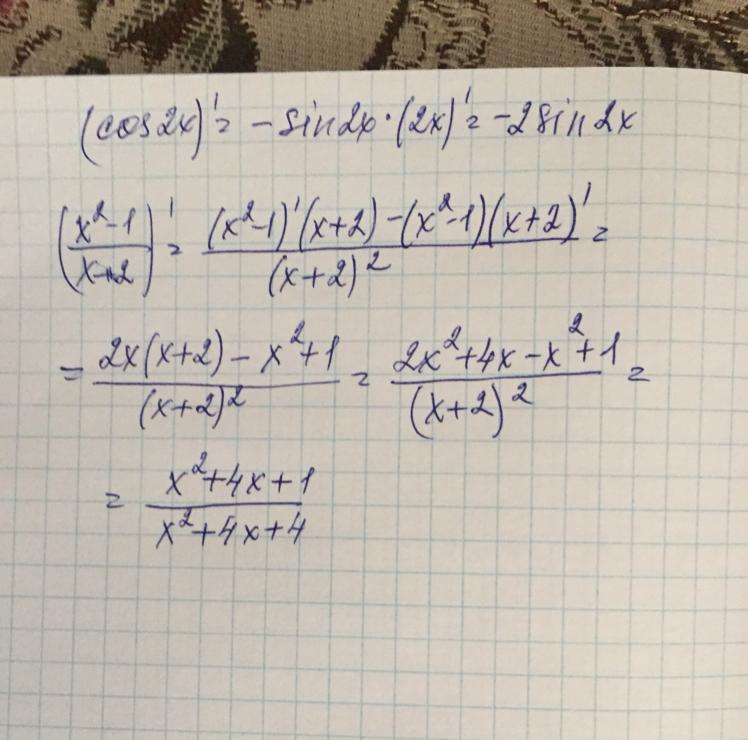 (cos2x)' = -sin2x·(2x)' = -2sin2x
((x²-1)/(x+2))' = ((x²-1)'(x+2)-(x²-1)(x+2)')/(x+2)² =
= (2x(x+2)-x²+1)/(x+2)² = (2x²+4x-x²+1)/(x+2)² =
= (x²+4x+1)/(x²+4x+4)